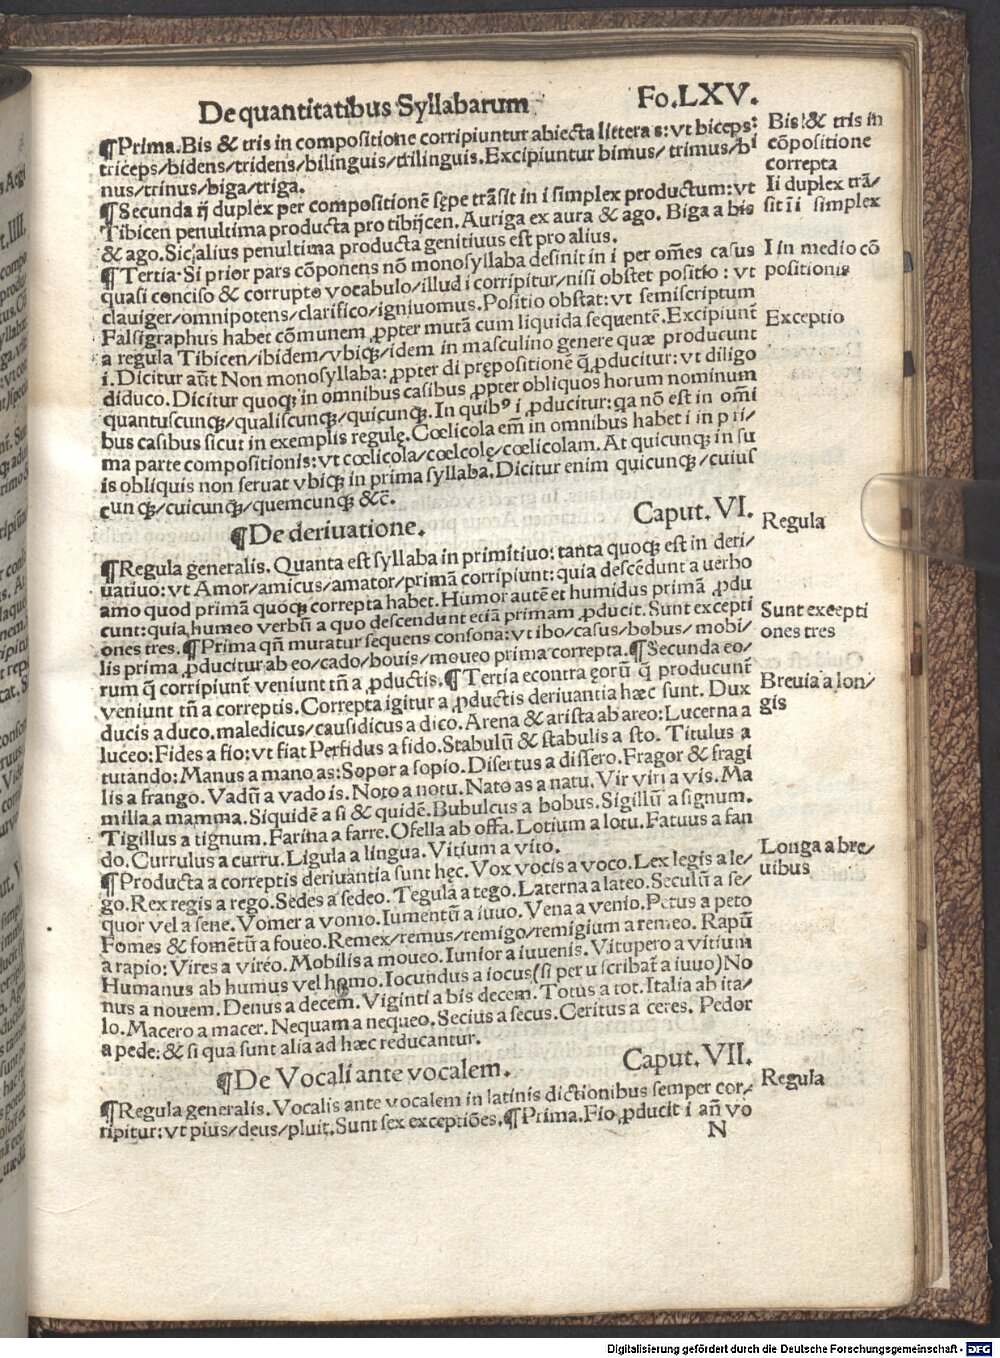 De quantitatibus Syllabarum Fo.LXV.
¶Prima.Bis & tris in compositione corripiuntur abiecta littera s:vt biceps:
triceps/bidens/tridens/bilinguis/trilinguis.Excipiuntur bimus/trimus/bi
nus/trinus/biga/triga.
¶Secunda ij duplex per compositionē sępe trāsit in i simplex productum:vt
Tibicen penultima producta pro tibijcen.Auriga ex aura & ago. Biga a bis
& ago.Sic alius penultima producta genitiuus est pro alius.
¶Tertia.Si prior pars cōponens nō monosyllaba desinit in i per om̄es casus
quasi conciso & corrupto vocabulo/illud i corripitur/nisi obstet positio : vt
clauiger/omnipotens/clarifico/igniuomus.Positio obstat:vt semiscriptum
Falsigraphus habet cōmunem ꝓpter mutā cum liquida sequentē.Excipiunt̄
a regula Tibicen/ibidem/vbiqꝫ/idem in masculino genere quæ producunt
i.Dicitur aūt Non monosyllaba: ꝓpter di prępositionē q̄ ꝓducitur:vt diligo
diduco.Dicitur quoqꝫ in omnibus casibus ꝓpter obliquos horum nominum
quantuscunqꝫ/qualiscunqꝫ/quicunqꝫ.In quibꝰ i ꝓducitur:qa nō est in om̄i
bus casibus sicut in exemplis regulę.Cœlicola em̄ in omnibus habet i in pri/
ma parte compositionis:vt cœlicola/cœlcolę/cœlicolam.At quicunqꝫ in su
is obliquis non seruat vbiqꝫ in prima syllaba.Dicitur enim quicunqꝫ/cuius
cunqꝫ/cuicunqꝫ/quemcunqꝫ &c̄.
¶De deriuatione. Caput.VI.
¶Regula generalis.Quanta est syllaba in primitiuo:tanta quoqꝫ est in deri/
uatiuo:vt Amor/amicus/amator/primā corripiunt:quia descēdunt a uerbo
amo quod primā quoqꝫ correpta habet.Humor autē et humidus primā ꝓdu
cunt:quia humeo verbū a quo descendunt eciā primam ꝓducit.Sunt excepti
ones tres.¶Prima qn̄ mutatur sequens consona:vt ibo/casus/bobus/mobi/
lis prima ꝓducitur ab eo/cado/bouis/moueo prima correpta.¶Secunda eo/
rum q̄ corripiunt̄ veniunt tn̄ a ꝓductis.¶Tertia econtra eorū q̄ producunt̄
veniunt tn̄ a correptis.Correpta igitur a ꝓductis deriuantia hæc sunt. Dux
ducis a duco.maledicus/causidicus a dico.Arena & arista ab areo:Lucerna a
luceo:Fides a fio:vt fiat Perfidus a fido.Stabulū & stabilis a sto. Titulus a
tutando:Manus a mano as:Sopor a sopio.Disertus a dissero.Fragor & fragi
lis a frango.Vadū a vado is.Noto a notu.Nato as a natu.Vir viri a vis.Ma
milla a mamma.Siquidē a si & quidē.Bubulcus a bobus.Sigillū a signum.
Tigillus a tignum.Farina a farre.Ofella ab offa.Lotium a lotu.Fatuus a fan
do.Currulus a curru.Ligula a lingua.Vitium a vito.
¶Producta a correptis deriuantia sunt hęc.Vox vocis a voco.Lex legis a le/
go.Rex regis a rego.Sedes a sedeo.Tegula a tego.Laterna a lateo.Seculū a se/
quor vel a sene.Vomer a vomo.Iumentū a iuuo.Vena a venio.Petus a peto
Fomes & fomētū a foueo.Remex/remus/remigo/remigium a remeo. Rapū
a rapio:Vires a vireo.Mobilis a moueo.Iunior a iuuenis.Vitupero a vitium
Humanus ab humus vel homo.Iocundus a iocus(si per u scribat̄ a iuuo)No
nus a nouem.Denus a decem.Viginti a bis decem.Totus a tot.Italia ab ita/
lo.Macero a macer.Nequam a nequeo.Secius a secus.Ceritus a ceres. Pedor
a pede:& si qua sunt alia ad hæc reducantur.
¶De Vocali ante vocalem. Caput.VII.
¶Regula generalis.Vocalis ante vocalem in latinis dictionibus semper cor/
ripitur:vt pius/deus/pluit.Sunt sex exceptiōes.¶Prima.Fio ꝓducit i an̄ vo
N
Bis & tris in
cōpositione
correpta
Ii duplex trā/
sit ī i simplex
I in medio cō
positionis
Exceptio
Regula
Sunt excepti
ones tres
Breuia a lon/
gis
Longa a bre/
uibus
Regula
Digitalisierung gefördert durch die Deutsche Forschungsgemeinschaft - DFG